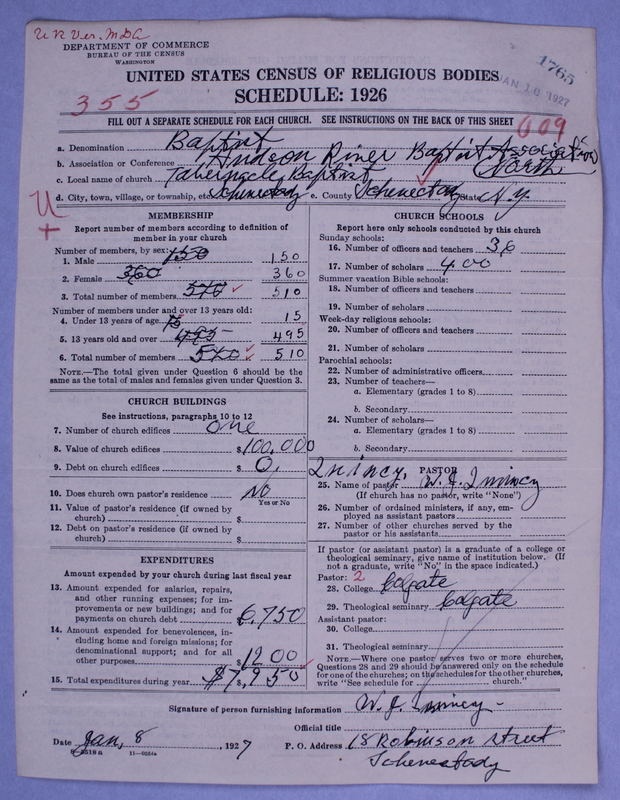 U R Ver. MDA
DEPARTMENT OF COMMERCE
BUREAU OF THE CENSUS
WASHINGTON
1765
JAN 10 1927
UNITED STATES CENSUS OF RELIGIOUS BODIES
SCHEDULE: 1926
355
FILL OUT A SEPARATE SCHEDULE FOR EACH CHURCH. SEE INSTRUCTIONS ON THE BACK OF THIS SHEET
609
a. Denomination Baptist
b. Association or Conference Hudson River Baptist Association North
c. Local name of church Tabernacle Baptist
d. City, town, village, or township, etc. Schenectady e. County Schenectady State N.Y.
U
+
MEMBERSHIP
Report number of members according to definition of
member in your church
Number of members, by sex:
1. Male 150 150
2. Female 360 360
3. Total number of members 510 510
Number of members under and over 13 years old:
4. Under 13 years of age 15 15
5. 13 years old and over 495 495
6. Total number of members 510 510
NOTE.—The total given under Question 6 should be
the same as the total of males and females given under Question 3.
CHURCH BUILDINGS
See instructions, paragraphs 10 to 12
7. Number of church edifices one
8. Value of church edifices $100,000
9. Debt on church edifices $0,
10. Does church own pastor's residence No
Yes or No
11. Value of pastor's residence (if owned by
church) $
12. Debt on pastor's residence (if owned by
church) $
EXPENDITURES
Amount expended by your church during last fiscal year
13. Amount expended for salaries, repairs,
and other running expenses; for im-
provements or new buildings; and for
payments on church debt $6,750
14. Amount expended for benevolences, in-
cluding home and foreign missions; for
denominational support; and for all
other purposes $1200
15. Total expenditures during year $7,950
CHURCH SCHOOLS
Report here only schools conducted by this church
Sunday schools:
16. Number of officers and teachers 36
17. Number of scholars 400
Summer vacation Bible schools:
18. Number of officers and teachers
19. Number of scholars
Week-day religious schools:
20. Number of officers and teachers
21. Number of scholars
Parochial schools:
22. Number of administrative officers
23. Number of teachers—
a. Elementary (grades 1 to 8)
b. Secondary
24. Number of scholars—
a. Elementary (grades 1 to 8)
b. Secondary
Quincy, PASTOR
25. Name of pastor W. J. Quincy
(If church has no pastor, write "None")
26. Number of ordained ministers, if any, em-
ployed as assistant pastors
27. Number of other churches served by the
pastor or his assistants
If pastor (or assistant pastor) is a graduate of a college or
theological seminary, give name of institution below. (If
not a graduate, write "No" in the space indicated.)
Pastor: 2
28. College Colgate
29. Theological seminary Colgate
Assistant pastor:
30. College
31. Theological seminary
NOTE.—Where one pastor serves two or more churches,
Questions 28 and 29 should be answered only on the schedule
for one of the churches; on the schedules for the other churches,
write "See schedule for church."
Signature of person furnishing information W. J. Quincy
Official title
Date Jan, 8, 1927 P. O. Address 18 Robinson Street
Schenectady
11—9524a